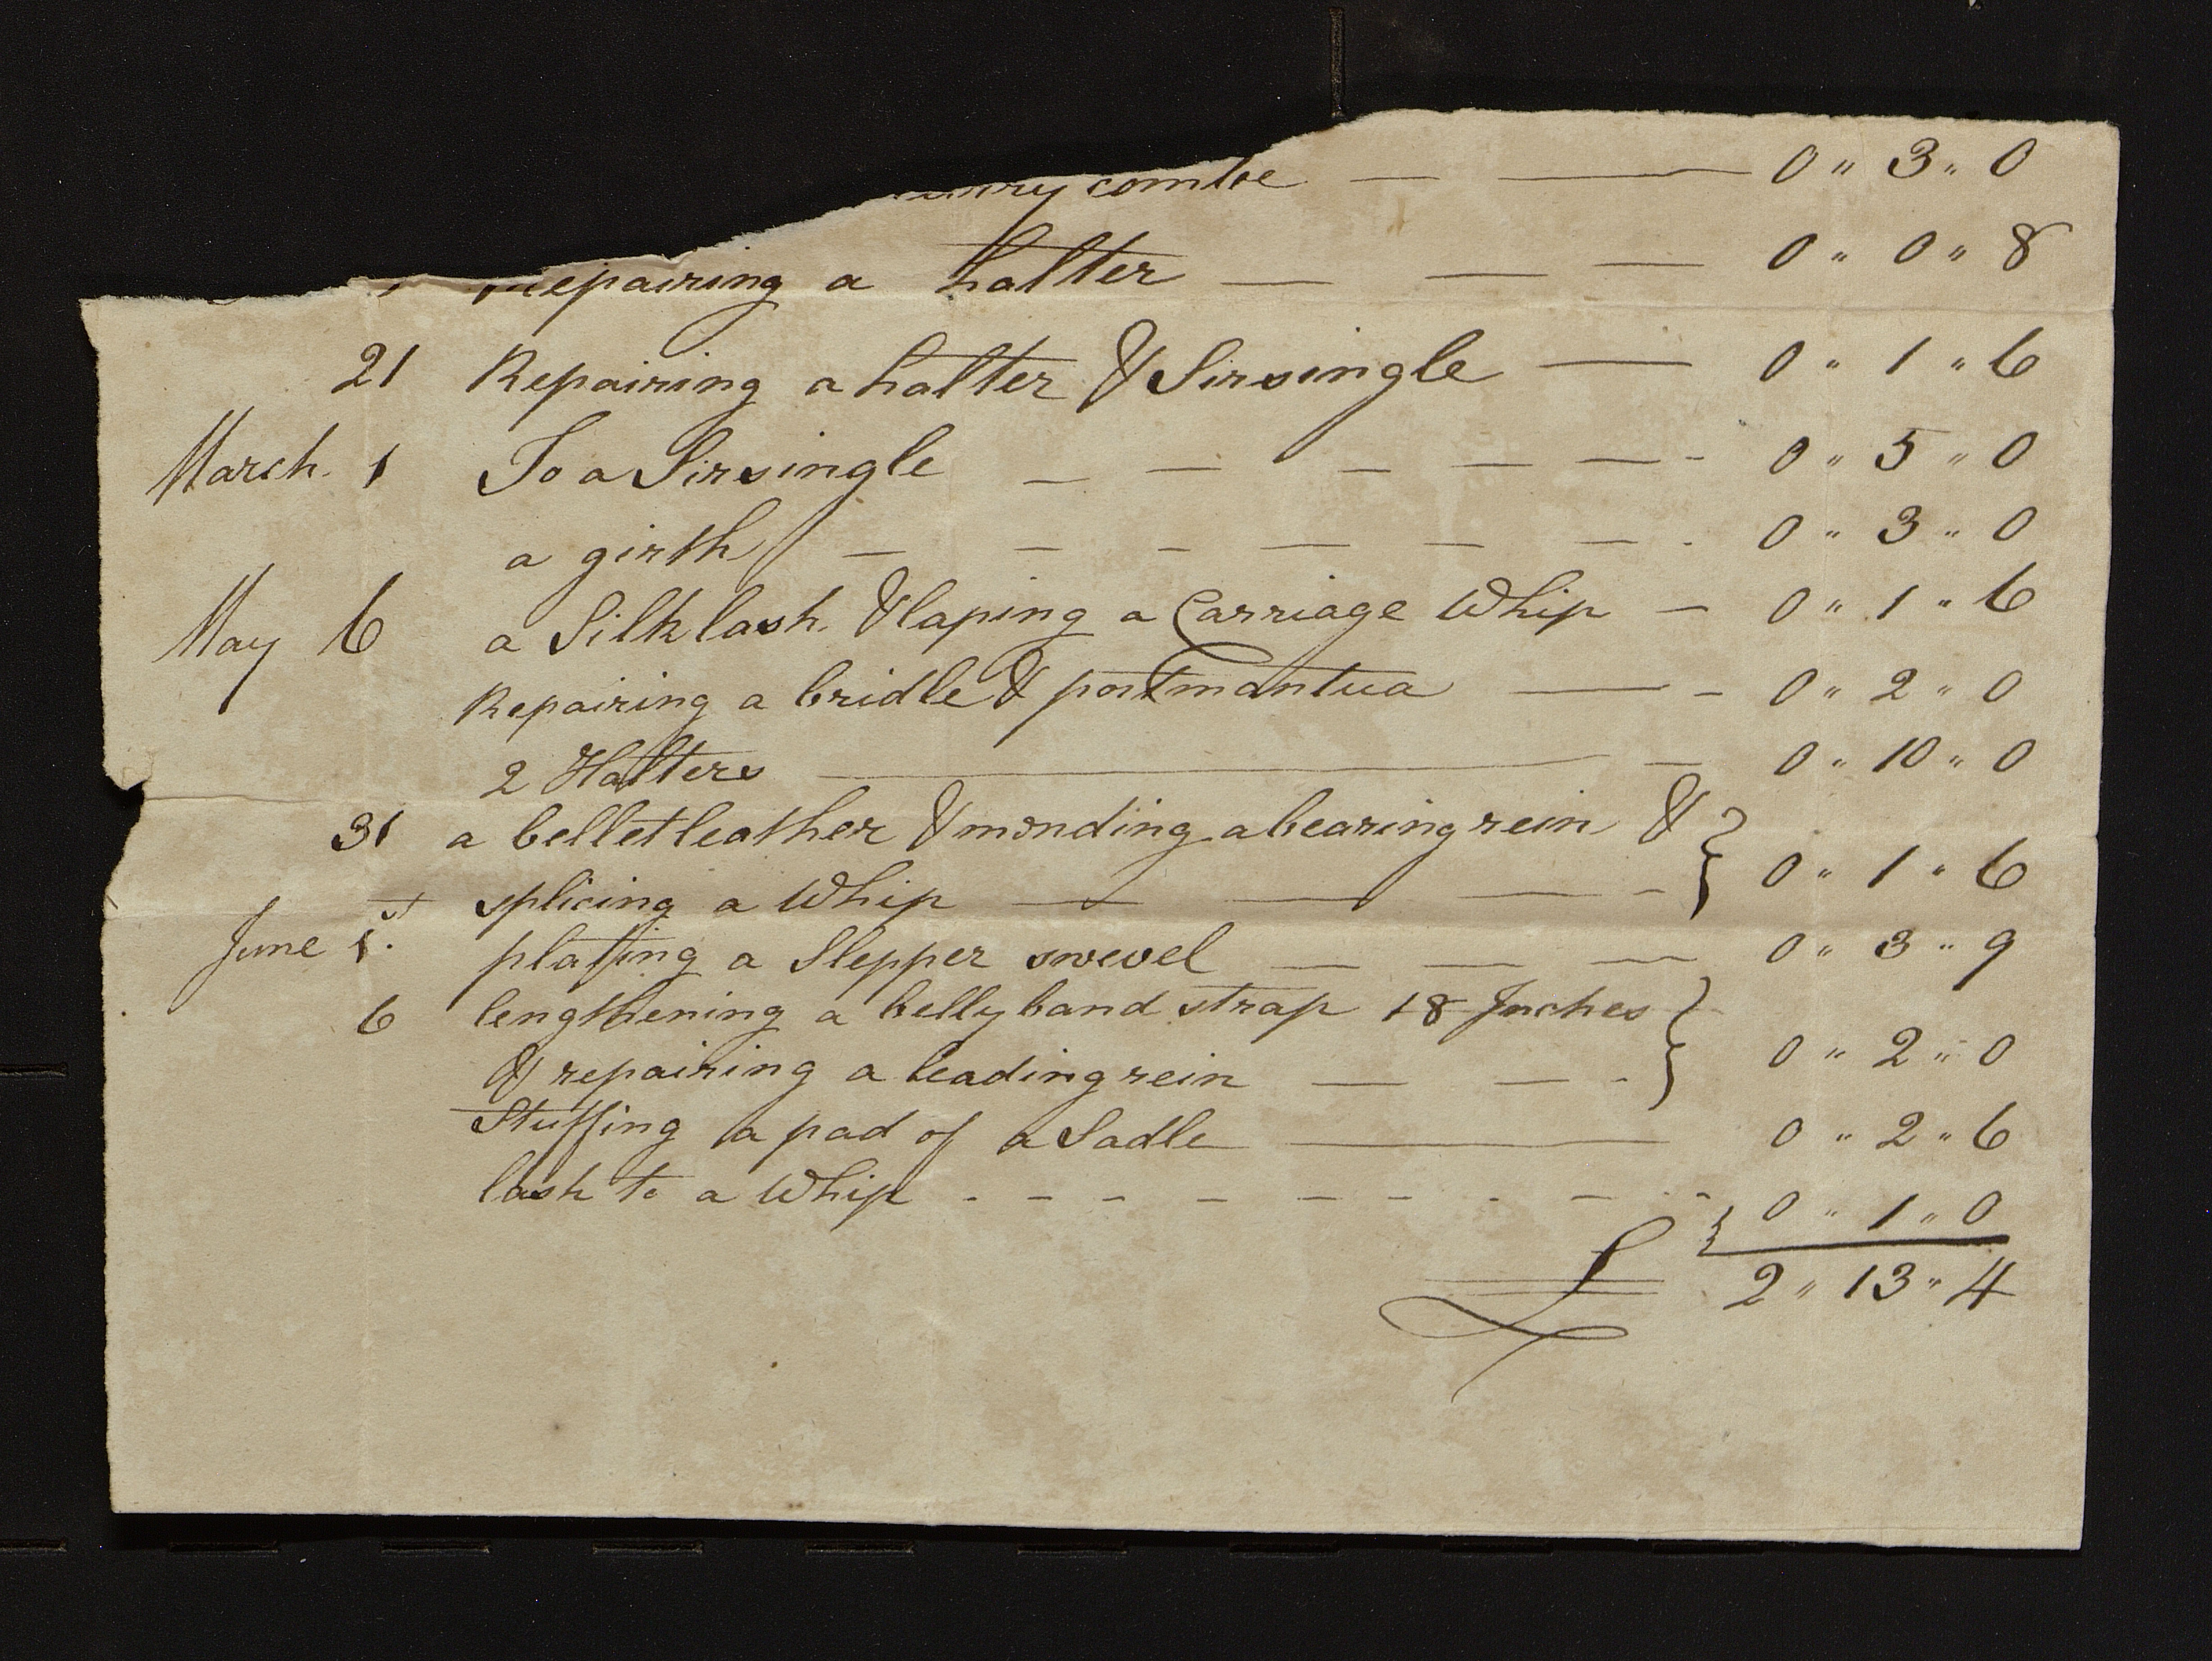 combe — — 0 " 3 " 0
Repairing a halter — — — 0 " 0 " 8
21 Repairing a halter & Sirsingle — 0 " 1 " 6
March. 1 To a Sirsingle — — — — — - 0 " 5 " 0
a girth — — — — — — - 0 " 3 " 0
May 6 a Silk lash. & laping a Carriage Whip — 0 " 1 " 6
Repairing a bridle & portmantua — - 0 " 2 " 0
2 Halters — — 0 " 10 " 0
31 a bellet leather & monding a bearing rein &
splicing a Whip — — — - } 0 " 1 " 6
June 1st. plating a Slepper swevel — — — 0 " 3 " 9
6 lengthening a belly band strap 18 Inches
& repairing a leading rein — — - } 0 " 2 " 0
Stuffing a pad of a Sadle — 0 " 2 " 6
lash to a Whip - - - - - - - - - 0 " 1 " 0
£ 2 " 13 " 4